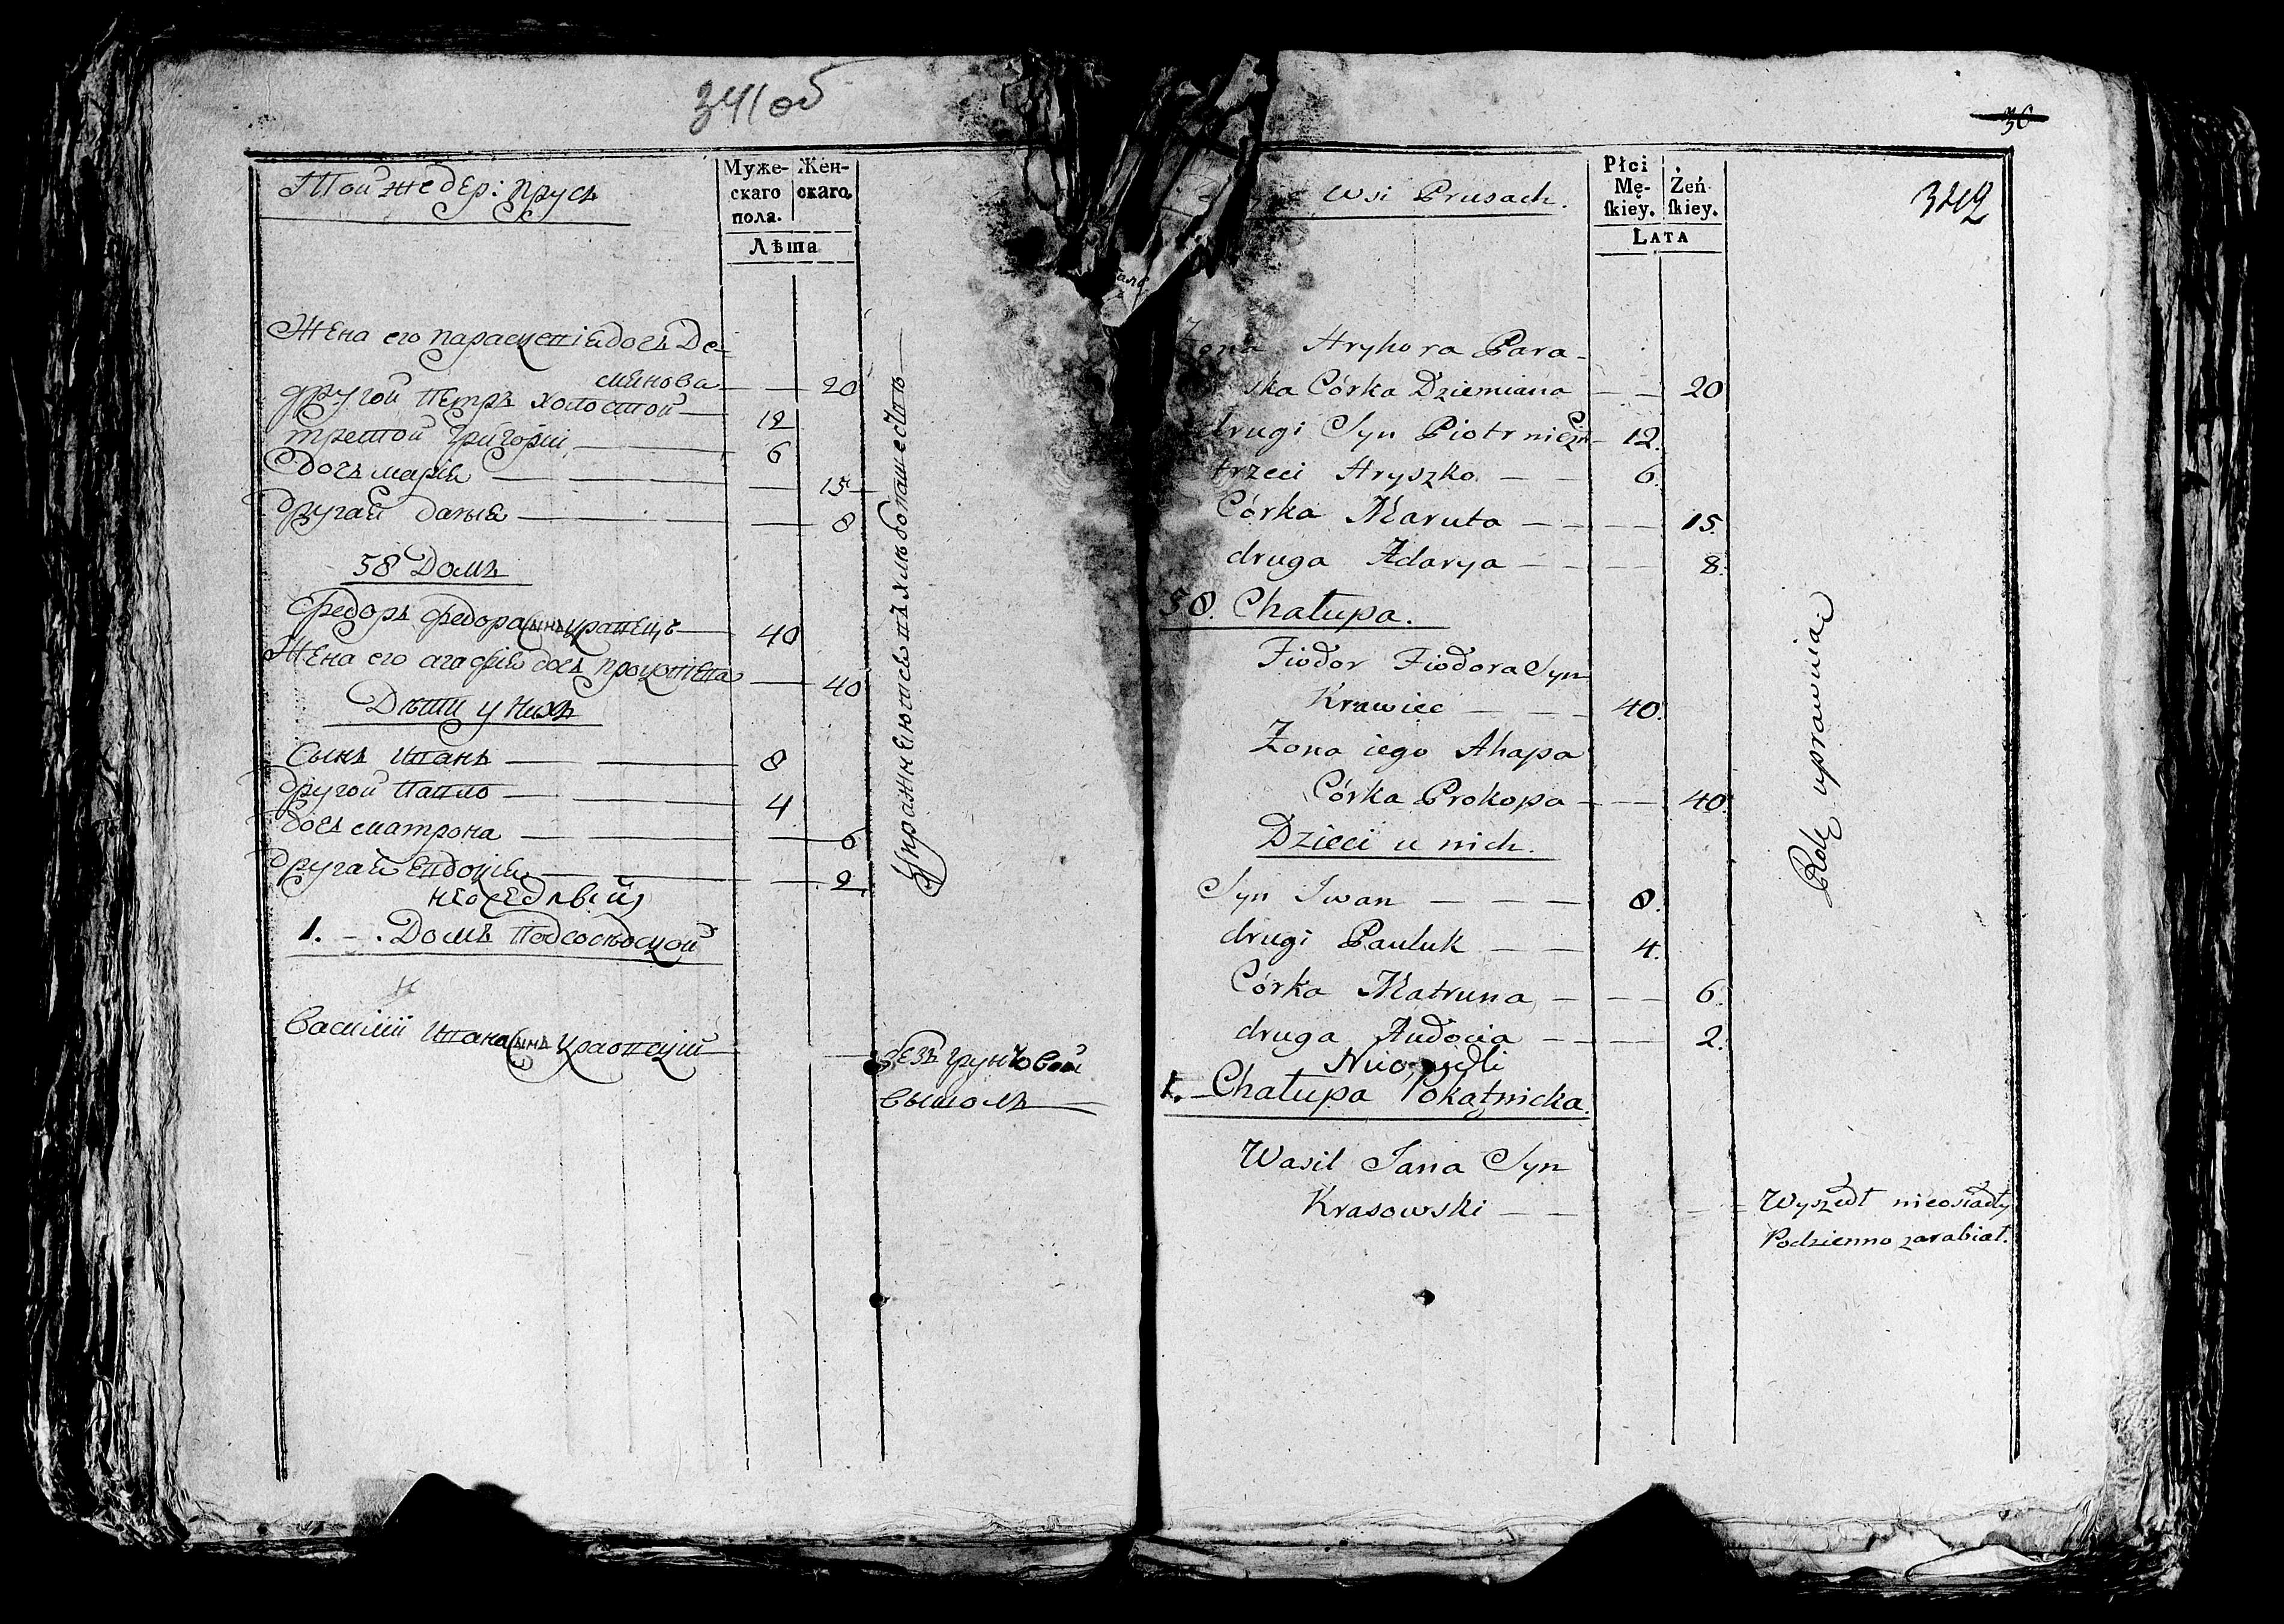 341об
Той же дер: Прусъ
Муже-
скаго
пола.
Жен-
скаго.
Лѣта
Жена его Параскевія дочь Де-
мянова — — 20
другой Петръ холостой — 12
третой Григорій — 6
дочь Марія — — 15
другая Дарья — — 8
58 Домъ
Федоръ Федора сынъ Кравецъ — 40
Жена его Агафія дочь Прокопьева — — 40
Дѣти у нихъ
Сынъ Иванъ — — 8
другой Павло — — 4
дочь Матрона — — 6
другая Евдокія — — 2
неоседлыи
1. — . Домъ Подсоседской
Василій Ивана сынъ Красовскій —
Упражняются въ хлебопашествѣ —
безъ грунтовой
вышолъ —
30
342
Wsi Prusach.
Płci
Mę-
skiey.
Żeń-
skiey.
LATA
Żona Hryhora Para-
ska Córka Dziemiana — — 20
drugi Syn Piotr nieżo — 12.
trzeci Hryszko — — 6.
Córka Maruta — — — 15.
druga Adarya — — — 8.
58. Chałupa.
Fiodor Fiodora Syn
Krawiec — — — 40.
Żona iego Ahapa
Córka Prokopa — — 40.
Dzieci u nich.
Syn Iwan — — — 8.
drugi Pauluk — — 4.
Córka Matruna — — — 6.
druga Audocia — — — 2.
Nieosiedli
1. — Chałupa Pokątnicka.
Wasil Jana Syn
Krasowski — —
Rolę uprawuia
Wyszedł nieosiadły
Podzienno zarabiał.